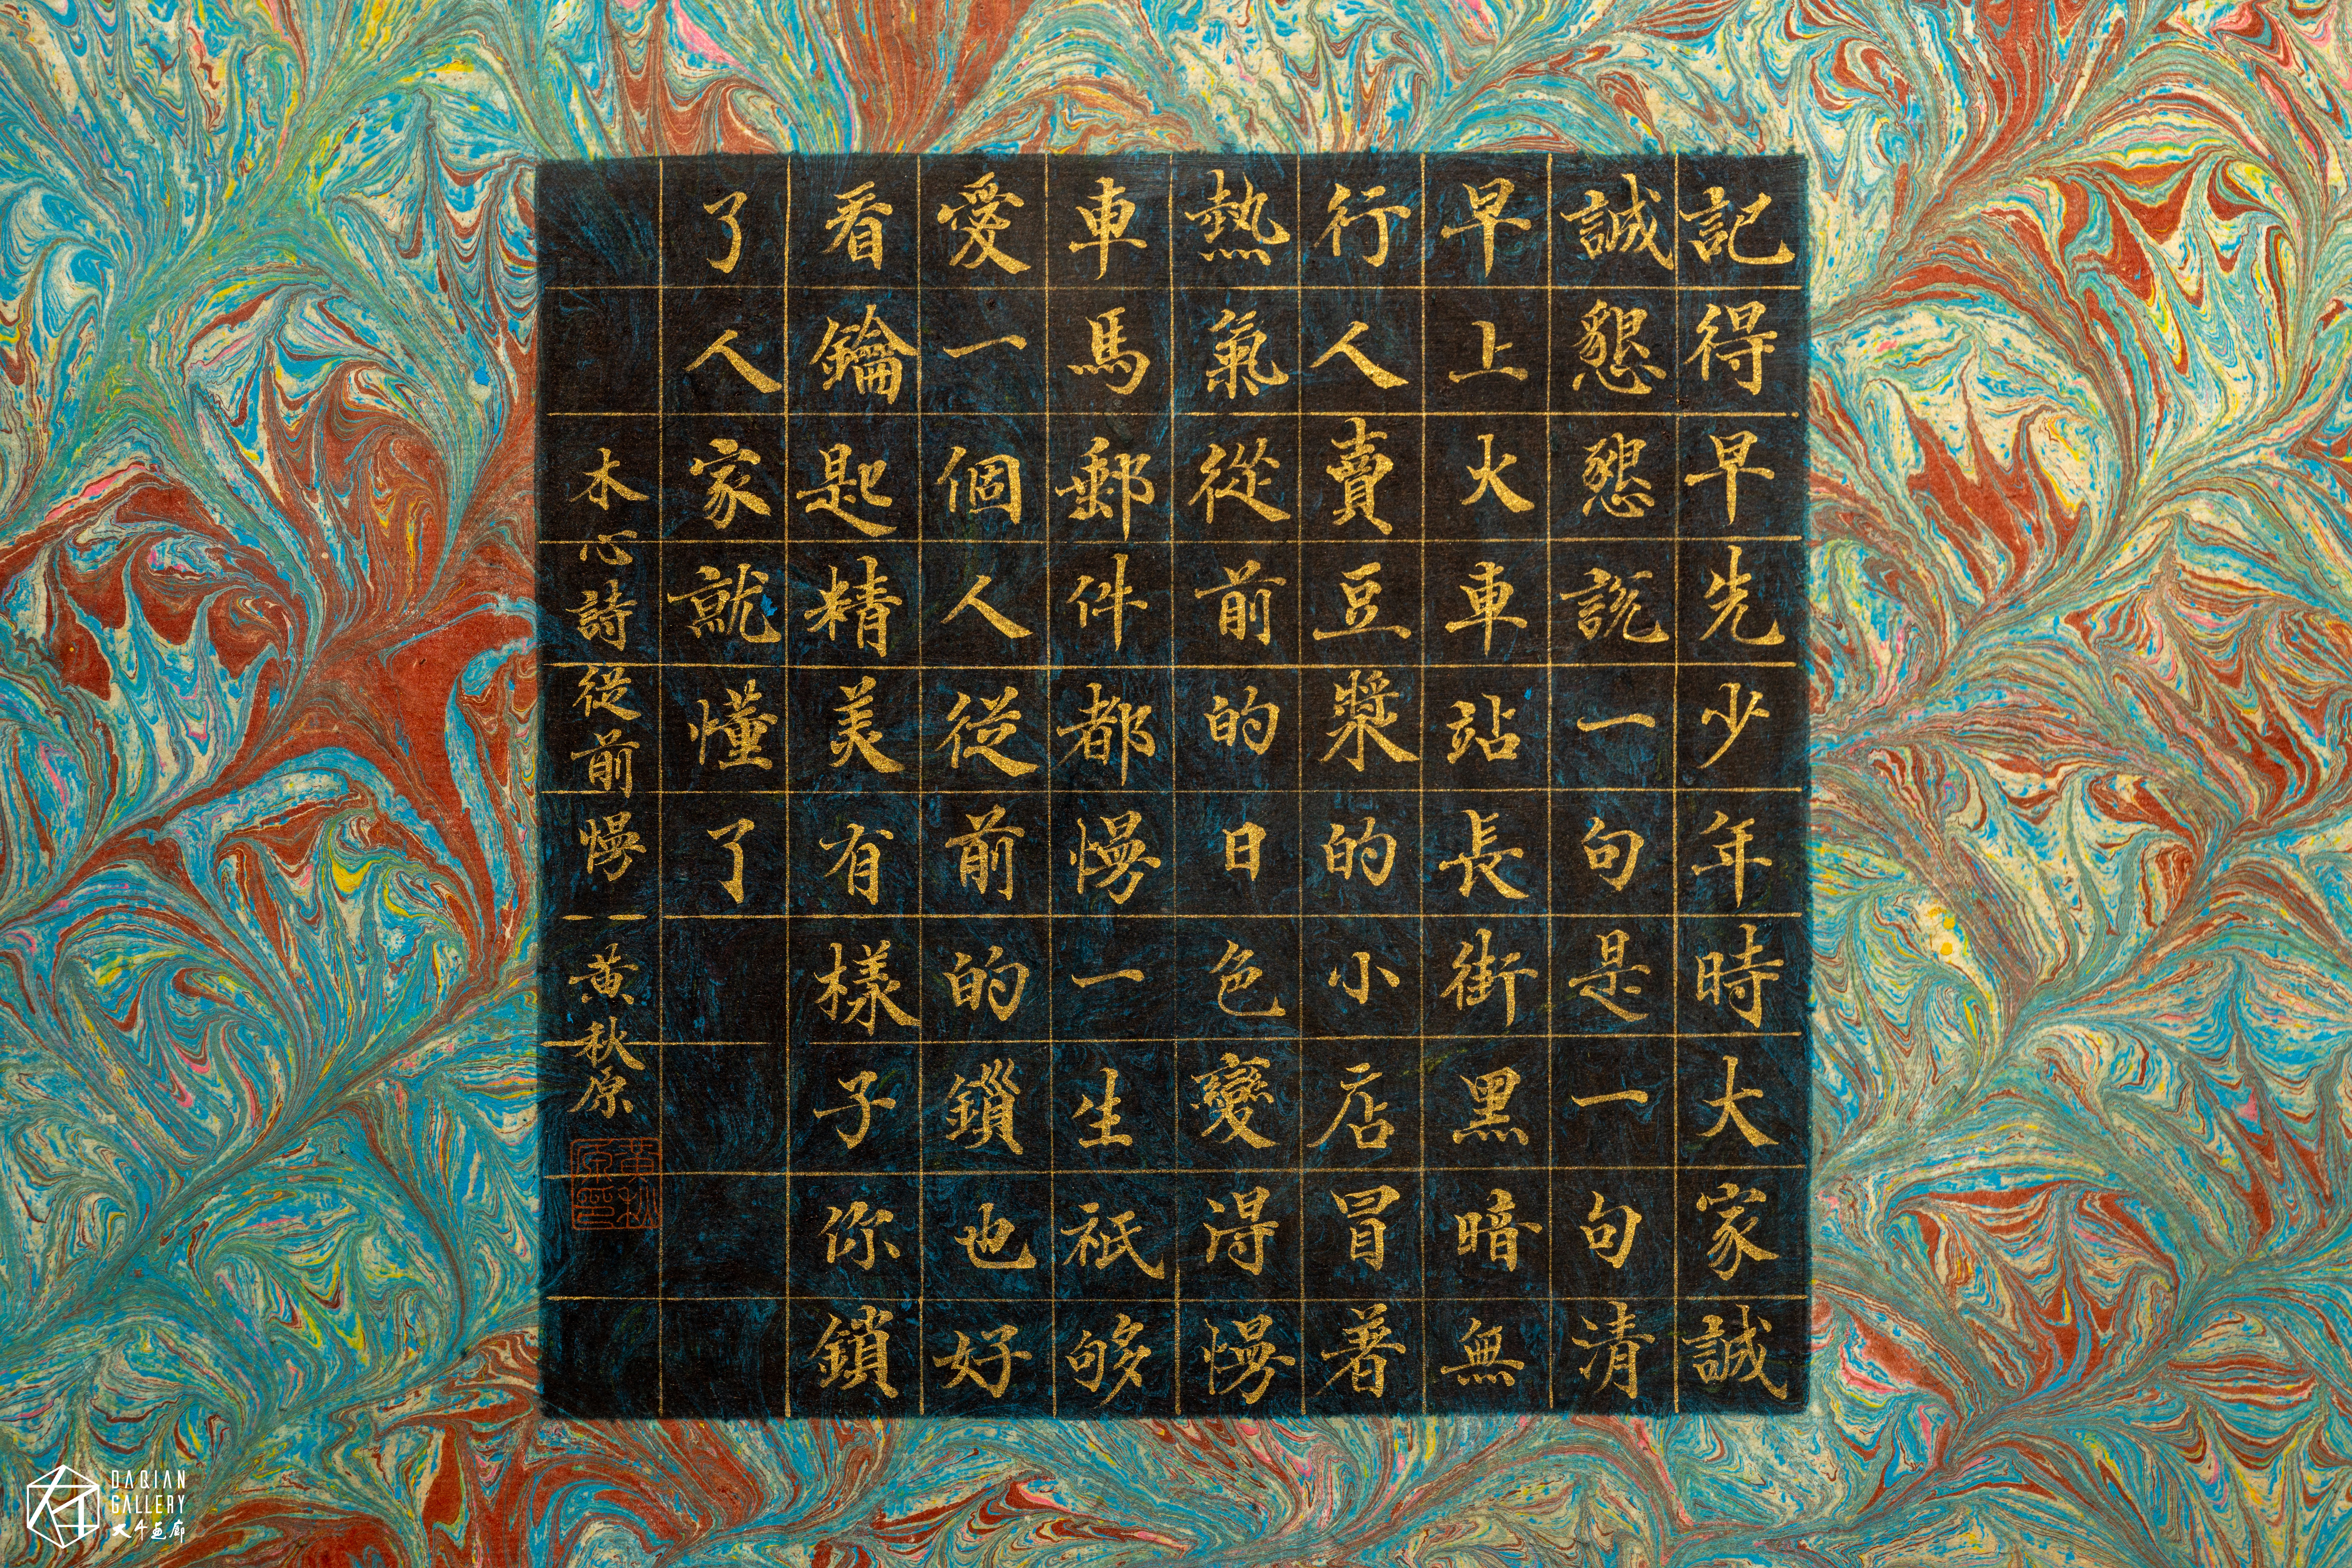 記得早先少年時大家誠
誠懇懇說一句是一句清
早上火車站長街黑暗無
行人賣豆漿的小店冒著
熱氣從前的日色變得慢
車馬郵件都慢一生祇够
愛一個人從前的鎖也好
看鑰匙精美有樣子你鎖
了人家就懂了
木心詩從前慢 黃秋原
黃秋原印
DAQIAN
GALLERY
大千画廊